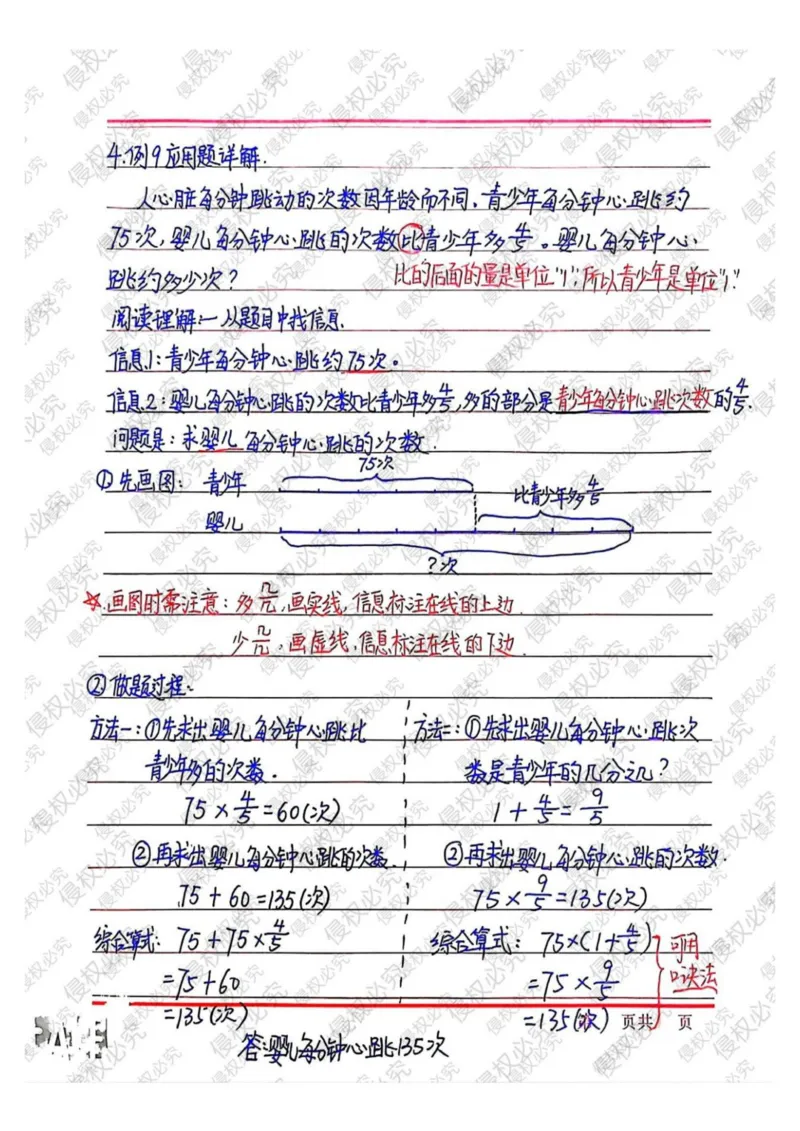 4.例9应用题详解.
人心脏每分钟跳动的次数因年龄而不同.青少年每分钟心跳约
75次,婴儿每分钟心跳的次数比青少年多4/5。婴儿每分钟心
跳约多少次?
比的后面的量是单位"1",所以青少年是单位"1".
阅读理解:一从题目中找信息.
信息1:青少年每分钟心跳约75次。
信息2:婴儿每分钟心跳的次数比青少年多4/5,多的部分是青少年每分钟心跳次数的4/5.
问题是:求婴儿每分钟心跳的次数.
①先画图: 青少年 75次
比青少年多4/5
婴儿
?次
☆.画图时需注意:多几/几,画实线,信息标注在线的上边.
少几/几,画虚线,信息标注在线的下边.
②做题过程:
方法一:①先求出婴儿每分钟心跳比
青少年多的次数.
75×4/5=60(次)
②再求出婴儿每分钟心跳的次数.
75+60=135(次)
综合算式: 75+75×4/5
=75+60
=135(次)
方法二:①先求出婴儿每分钟心跳次
数是青少年的几分之几?
1+4/5=9/5
②再求出婴儿每分钟心跳的次数.
75×9/5=135(次)
综合算式: 75×(1+4/5)
=75×9/5
=135(次)
可用
口诀法
页共 页
答:婴儿每分钟心跳135次
侵权必究